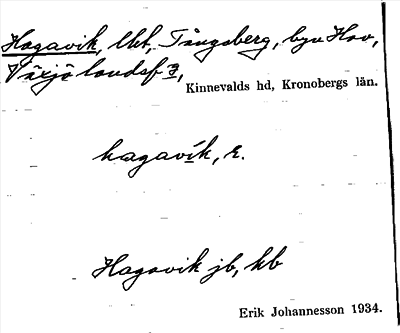 Hagavik, lht, Tångsberg, byn Hov,
Växjö landsf 3,
Kinnevalds hd, Kronobergs län.
hagavík, r.
Hagavik jb, kb
Erik Johannesson 1934.